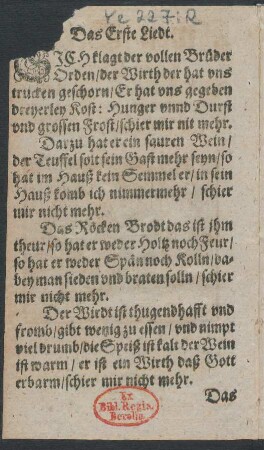 Ye 227:R
Das Erste Liedt.
ICH klagt der vollen Brüder
Orden/ der Wirth der hat vns
trucken geschorn/ Er hat vns gegeben
dreyerley Kost: Hunger vnnd Durst
vnd grossen Frost/ schier mir nit mehr.
Darzu hat er ein sauren Wein/
der Teuffel solt sein Gast mehr seyn/ so
hat im Hauß kein Semmel er/ in sein
Hauß komb ich nimmermehr/ schier
mir nicht mehr.
Das Röcken Brodt das ist jhm
theur/ so hat er weder Holtz noch Feur/
so hat er weder Spän noch Kolln/ da-
bey man sieden vnd braten solln/ schier
mir nicht mehr.
Der Wirdt ist thugendhafft vnd
fromb/ gibt wenig zu essen/ vnd nimpt
viel drumb/ die Speiß ist kalt der Wein
ist warm/ er ist ein Wirth daß Gott
erbarm/ schier mir nicht mehr.
Das
Ex
Bibl. Regia
Berolin.